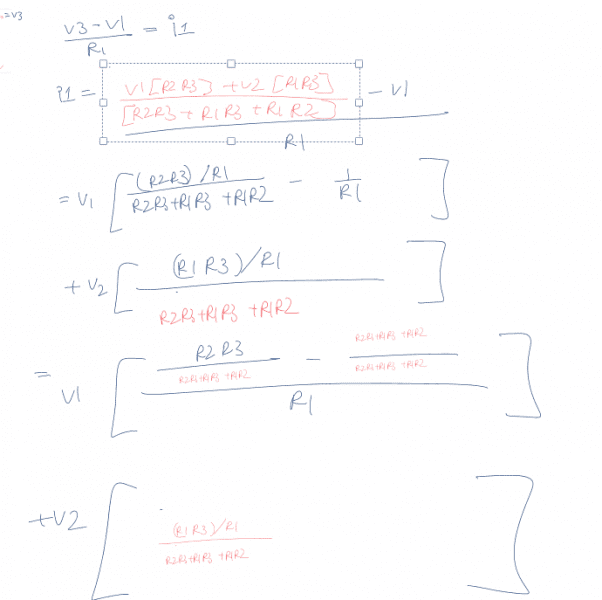 =v3
v3-v1 / R1 = i1
i1 = v1[R2R3] + v2[R1R3] / [R2R3 + R1R3 + R1R2] - v1
R1
= v1 [ (R2R3)/R1 / R2R3+R1R3+R1R2 - 1 / R1 ]
+ v2 [ (R1R3)/R1 / R2R3+R1R3+R1R2 ]
= v1 [ R2R3 / R2R3+R1R3+R1R2 - R2R3+R1R3+R1R2 / R2R3+R1R3+R1R2 ]
R1
+v2 [ (R1R3)/R1 / R2R3+R1R3+R1R2 ]